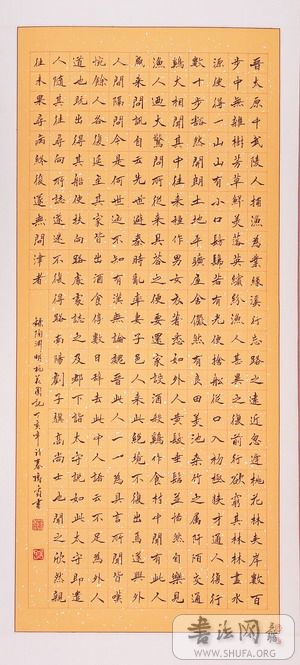 晉太原中武陵人捕漁為業緣溪行忘路之遠近忽逢桃花林夾岸數百
步中無雜樹芳草鮮美落英繽紛漁人甚異之復前行欲窮其林林盡水
源便得一山山有小口髣髴若有光便捨船從口入初極狹才通人復行
數十步豁然開朗土地平曠屋舍儼然有良田美池桑竹之屬阡陌交通
鷄犬相聞其中往來種作男女衣著悉如外人黃髮垂髫並怡然自樂見
漁人乃大驚問所從來具答之便要還家設酒殺鷄作食村中聞有此人
咸來問訊自云先世避秦時亂率妻子邑人來此絕境不復出焉遂與外
人間隔問今是何世迺不知有漢無論魏晉此人一一為具言所聞皆嘆
惋餘人各復延至其家皆出酒食停數日辭去此中人語云不足為外人
道也既出得其船便扶向路處處誌之及郡下詣太守說如此太守即遣
人隨其往尋向所誌遂迷不復得路南陽劉子驥高尚士也聞之欣然親
往未果尋病終後遂無問津者
錄陶淵明桃花園記丁亥年書
书法网
WWW.SHUFA.ORG